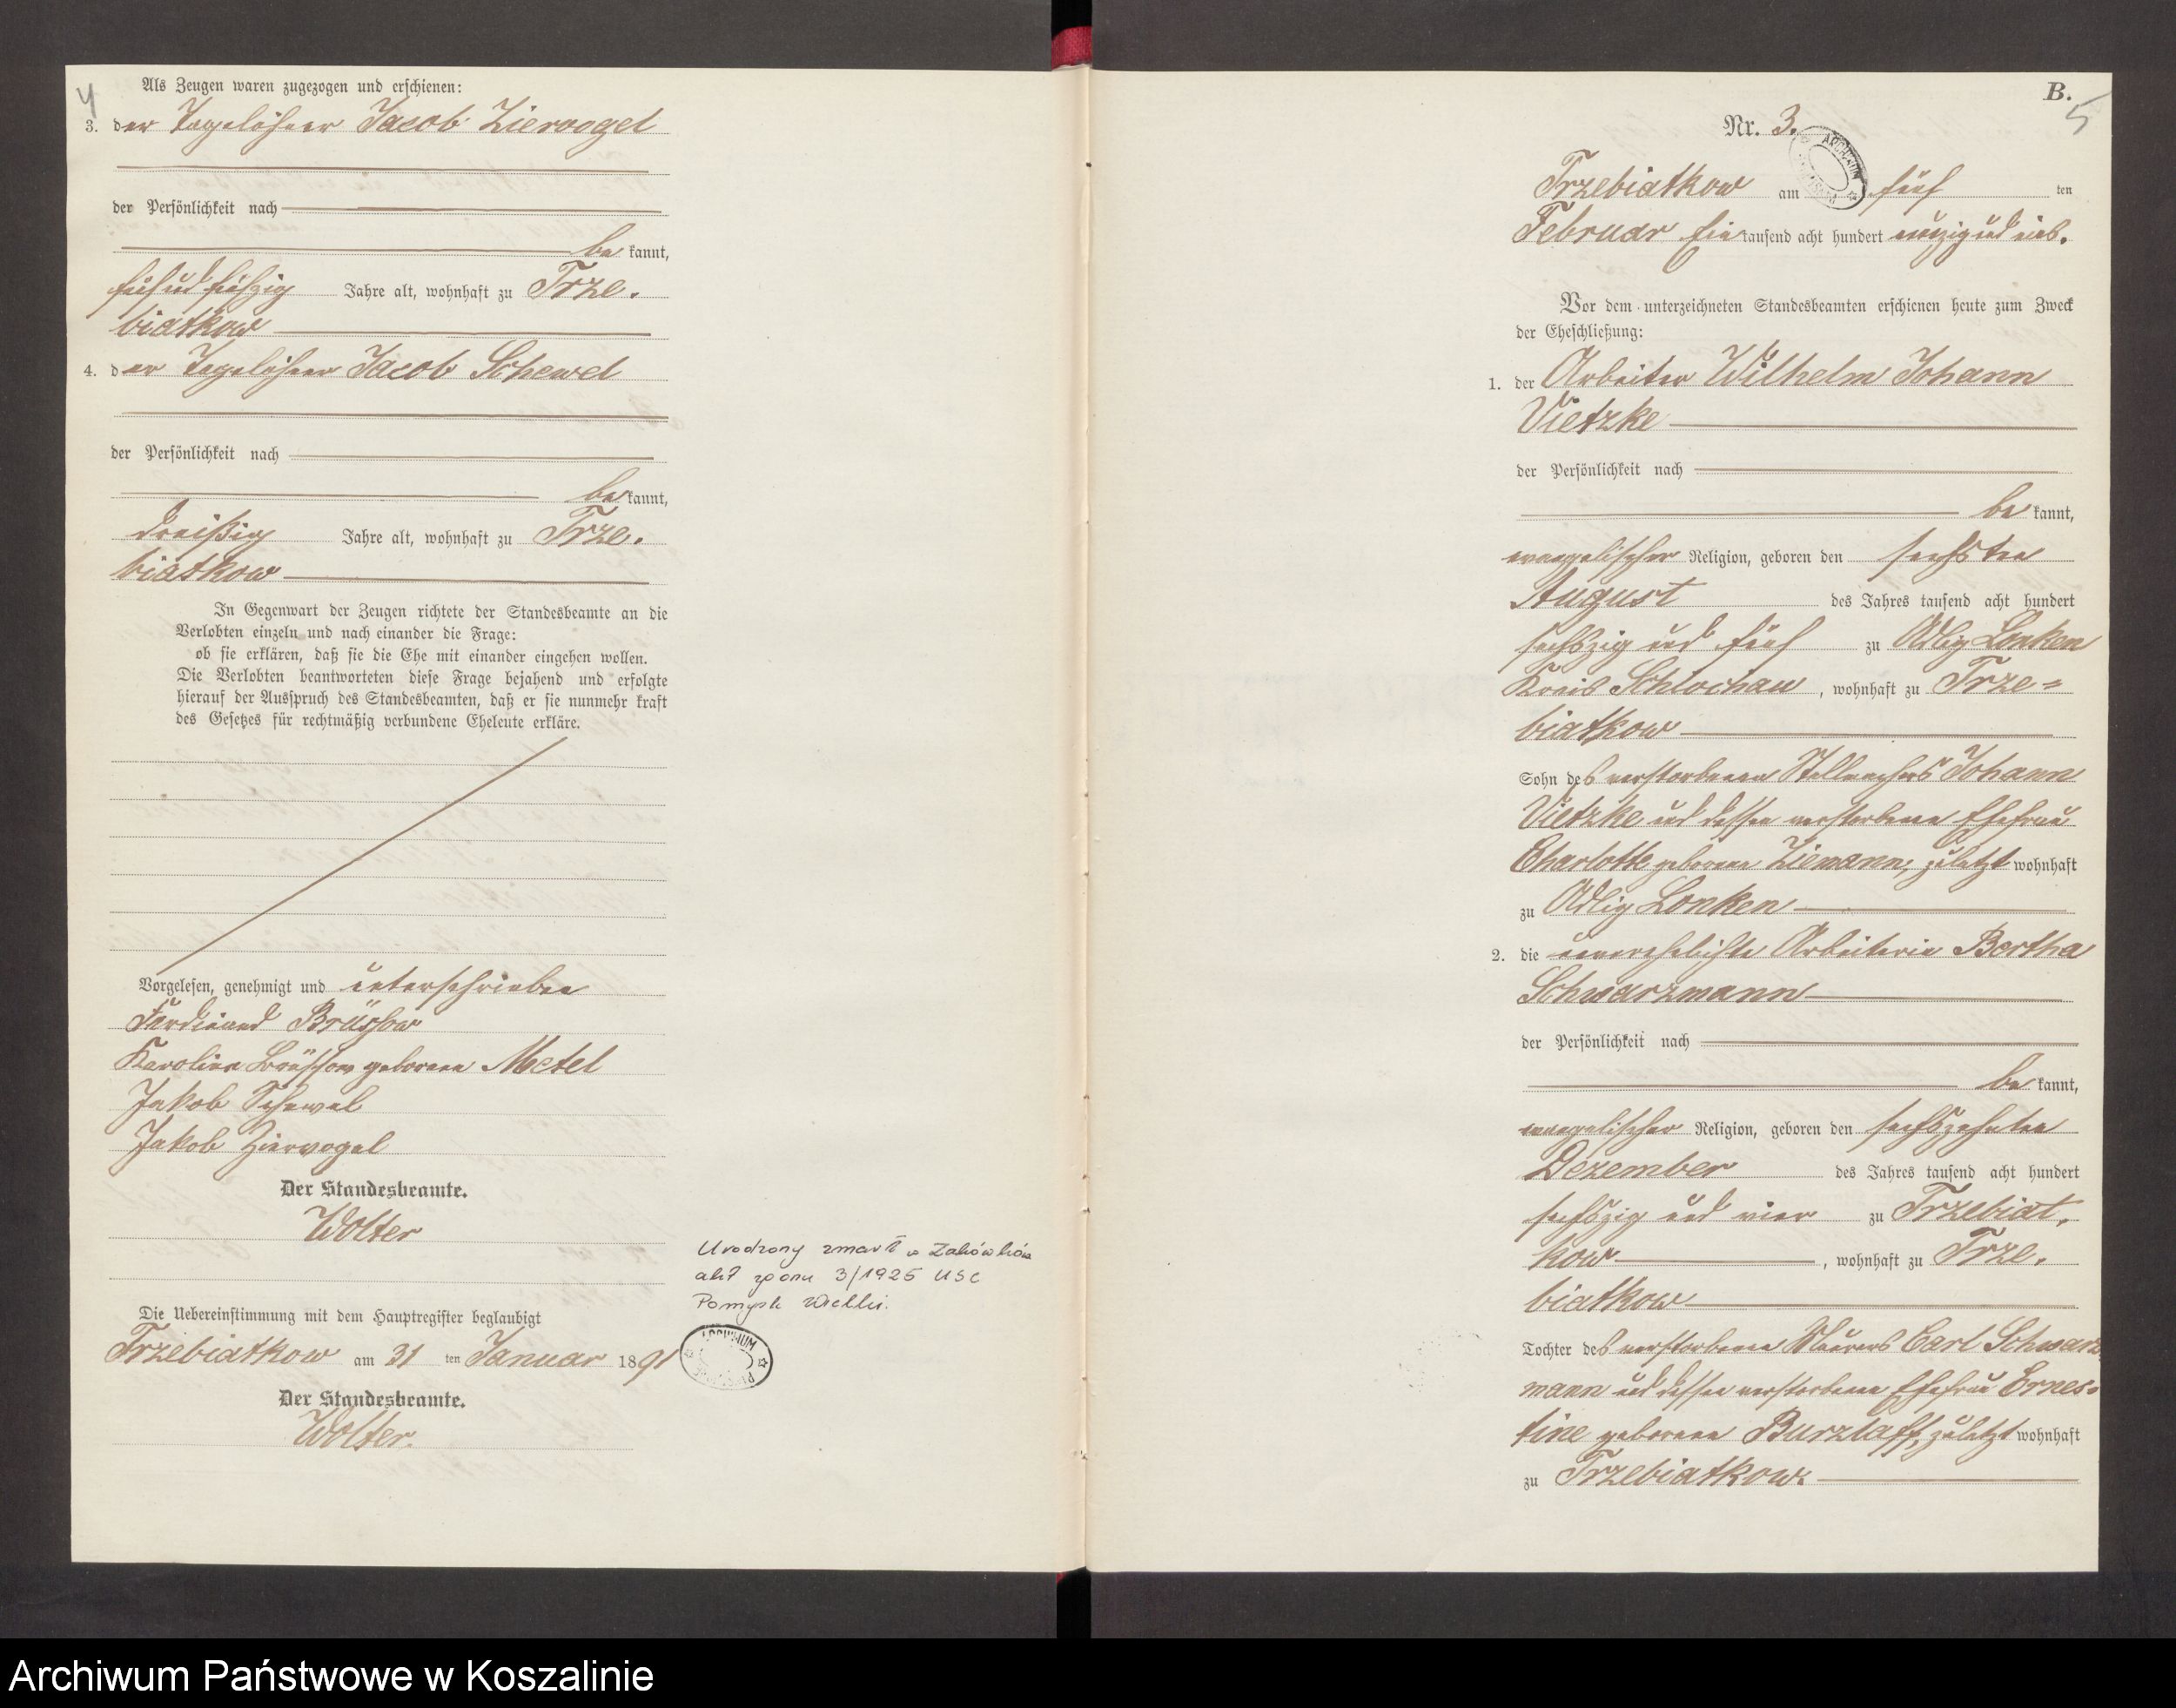 4
Als Zeugen waren zugezogen und erschienen:
3. der Tagelöhner Jacob Ziervogel
der Persönlichkeit nach
be kannt,
fünf und fünfzig Jahre alt, wohnhaft zu Trze-
biatkow
4. der Tagelöhner Jacob Schewel
der Persönlichkeit nach
be kannt,
dreißig Jahre alt, wohnhaft zu Trze-
biatkow
In Gegenwart der Zeugen richtete der Standesbeamte an die
Verlobten einzeln und nach einander die Frage:
ob sie erklären, daß sie die Ehe mit einander eingehen wollen.
Die Verlobten beantworteten diese Frage bejahend und erfolgte
hierauf der Ausspruch des Standesbeamten, daß er sie nunmehr kraft
des Gesetzes für rechtmäßig verbundene Eheleute erkläre.
Vorgelesen, genehmigt und unterschrieben
Ferdinand Brüssow
Karoline Brüssow geborene Metel
Jakob Schewel
Jakob Ziervogel
Der Standesbeamte.
Wolter
Die Uebereinstimmung mit dem Hauptregister beglaubigt
Trzebiatkow am 31 ten Januar 1891
Der Standesbeamte.
Wolter.
Urodzony zmarł w
akt zgonu 3/1925 USC
Pomysk Wielki.
ARCHIWUM
B.
5
Nr. 3.
ARCHIWUM
Trzebiatkow am fünf ten
Februar Ein tausend acht hundert neunzig und eins.
Vor dem unterzeichneten Standesbeamten erschienen heute zum Zweck
der Eheschließung:
1. der Arbeiter Wilhelm Johann
Vietzke
der Persönlichkeit nach
be kannt,
evangelischer Religion, geboren den sechsten
August des Jahres tausend acht hundert
sechszig und fünf zu Adlig Lonken
Kreis Schlochau, wohnhaft zu Trze=
biatkow
Sohn des verstorbenen Stellmachers Johann
Vietzke und dessen verstorbene Ehefrau
Charlotte geborene Ziemann, zuletzt wohnhaft
zu Adlig Lonken
2. die unverehelichte Arbeiterin Bertha
Schwarzmann
der Persönlichkeit nach
be kannt,
evangelischer Religion, geboren den sechszehnten
Dezember des Jahres tausend acht hundert
sechszig und vier zu Trzebiat-
kow, wohnhaft zu Trze-
biatkow
Tochter des verstorbenen Maurers Carl Schwarz
mann und dessen verstorbene Ehefrau Ernes-
tine geborene Burzlaff, zuletzt wohnhaft
zu Trzebiatkow.
Archiwum Państwowe w Koszalinie